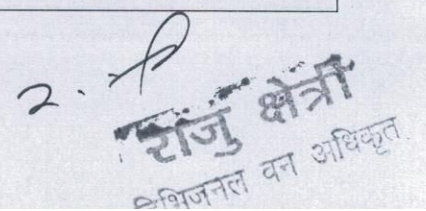 २.
राजु क्षेत्री
डिभिजनल वन अधिकृत